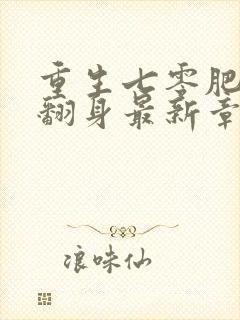 重生七零肥
翻身最新章
浪味仙